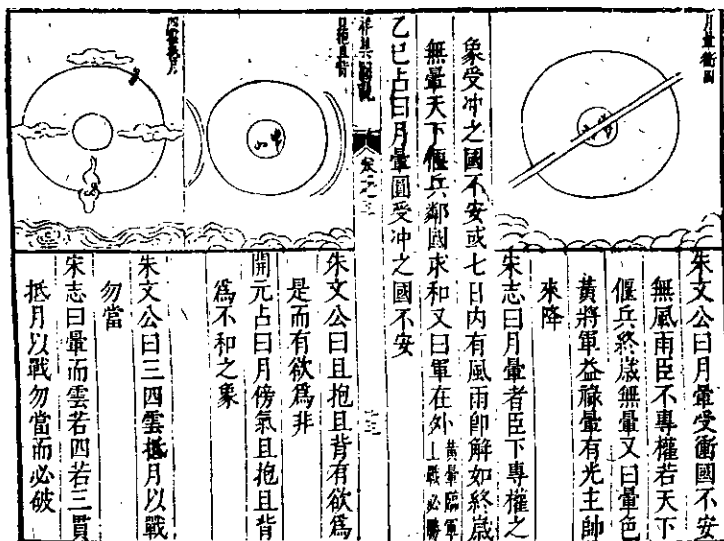 月暈衝圖
朱文公曰月暈受衝國不安
無風雨臣不專權若天下
偃兵終歲無暈又曰暈色
黃將軍益祿暈有光主帥
來降
宋志曰月暈者臣下專權之
象受冲之國不安或七日内有風雨卽解如終歲
無暈天下偃兵鄰國求和又曰軍在外黃暈臨軍上戰必勝
乙巳占曰月暈圓受冲之國不安
卷之三
十三
且抱且背
朱文公曰且抱且背有欲爲
是而有欲爲非
開元占曰月傍氣且抱且背
爲不和之象
朱文公曰三四雲抵月以戰
勿當
宋志曰暈而雲若四若三貫
抵月以戰勿當而必破